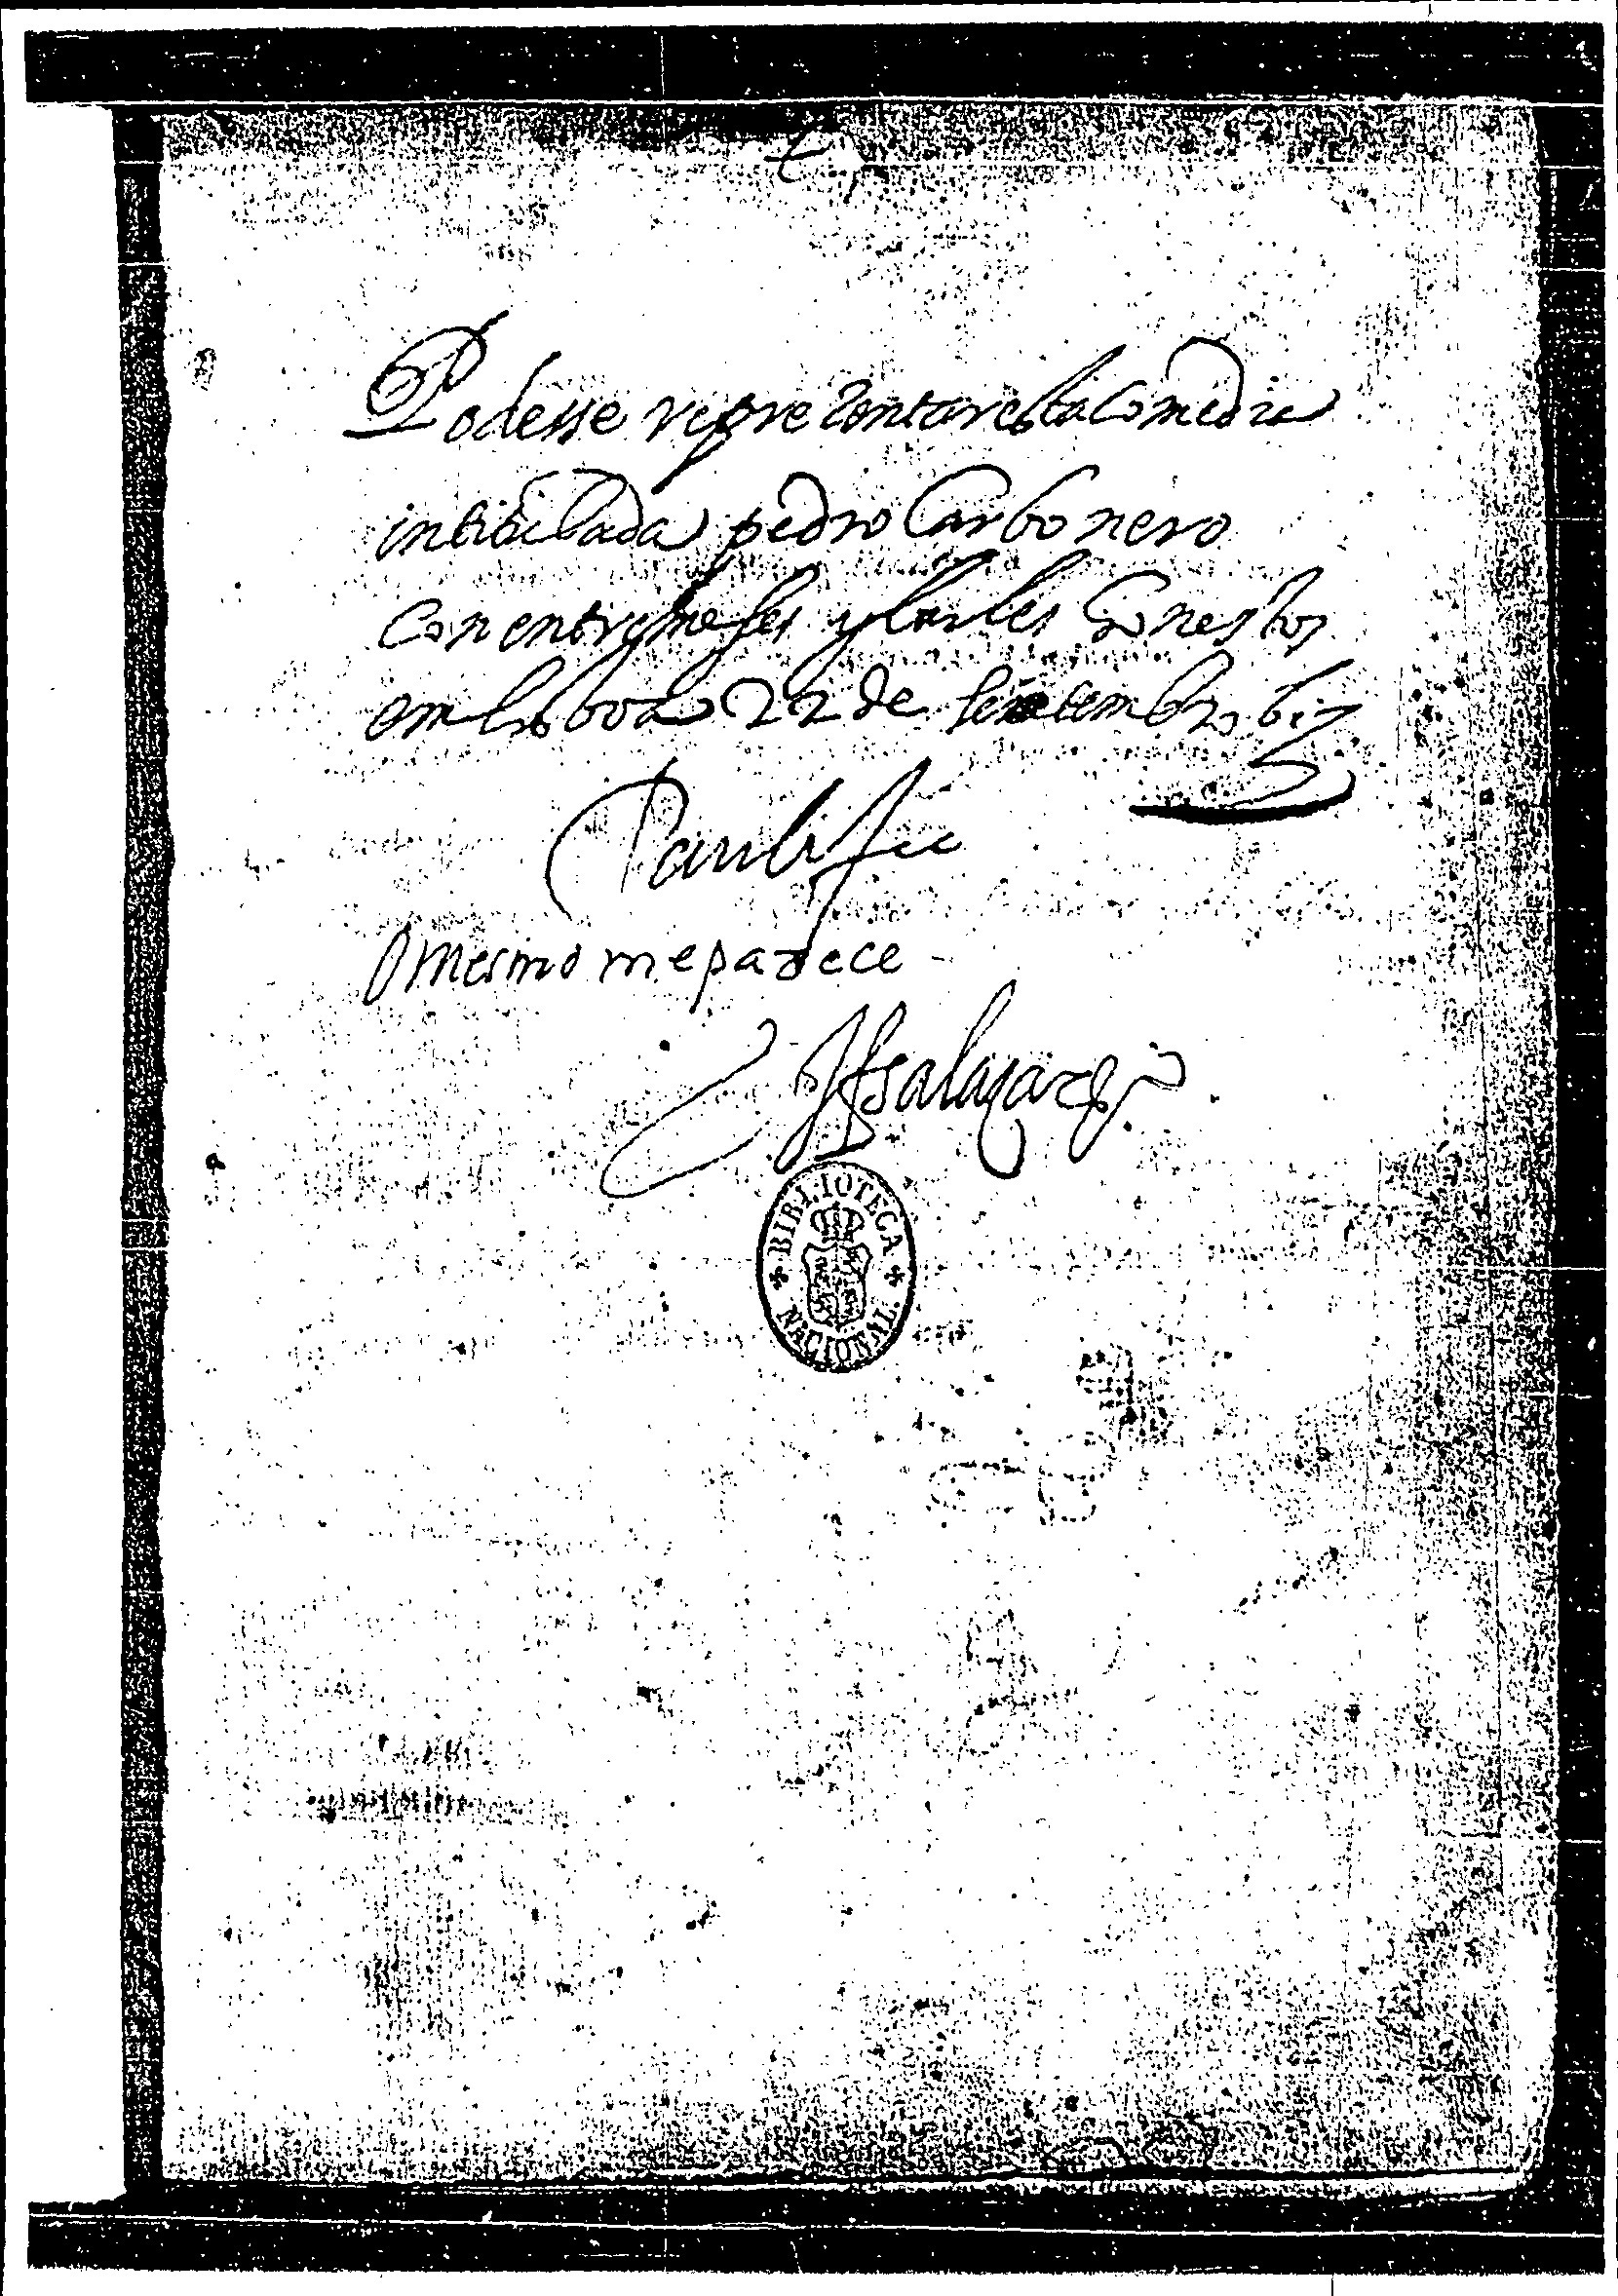 Podesse reprezentar esta Comedia
intitulada pedro Carbonero
Con entremeses y bailes honestos
em lisboa 22 de setembro 617
O mesmo me parece
Salazar
BIBLIOTECA NACIONAL